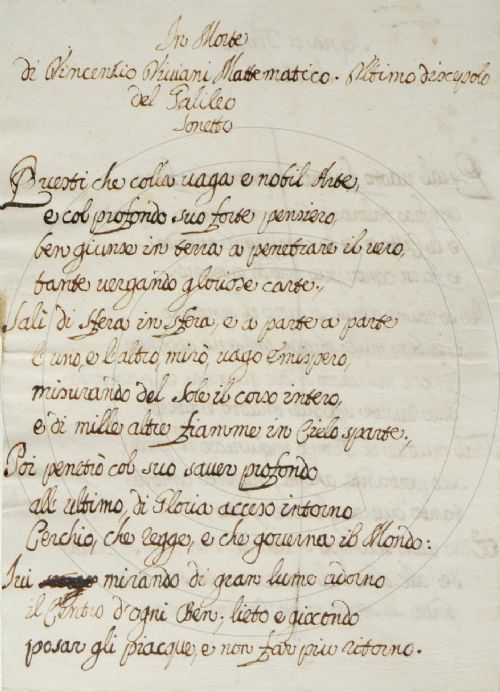 In Morte
di Vincentio Viviani Mattematico. Ultimo discepolo
del Galileo
Sonetto
Questi, che colla vaga e nobil Arte,
e col profondo suo forte pensiero,
ben giunse in terra a penetrare il vero,
tante vergando gloriose carte,
Salì di sfera in sfera, e a parte a parte
l'uno, e l'altro mirò vago Emispero,
misurando del Sole il corso intero,
e di mille altre fiamme in Cielo sparte.
Poi penetrò col suo saver profondo
all'ultimo, di Gloria acceso intorno
Cerchio, che regge, e che governa il Mondo:
Ivi mirando di gran lume adorno
il Centro d'ogni Ben, lieto e giocondo
posar gli piacque, e non far più ritorno.